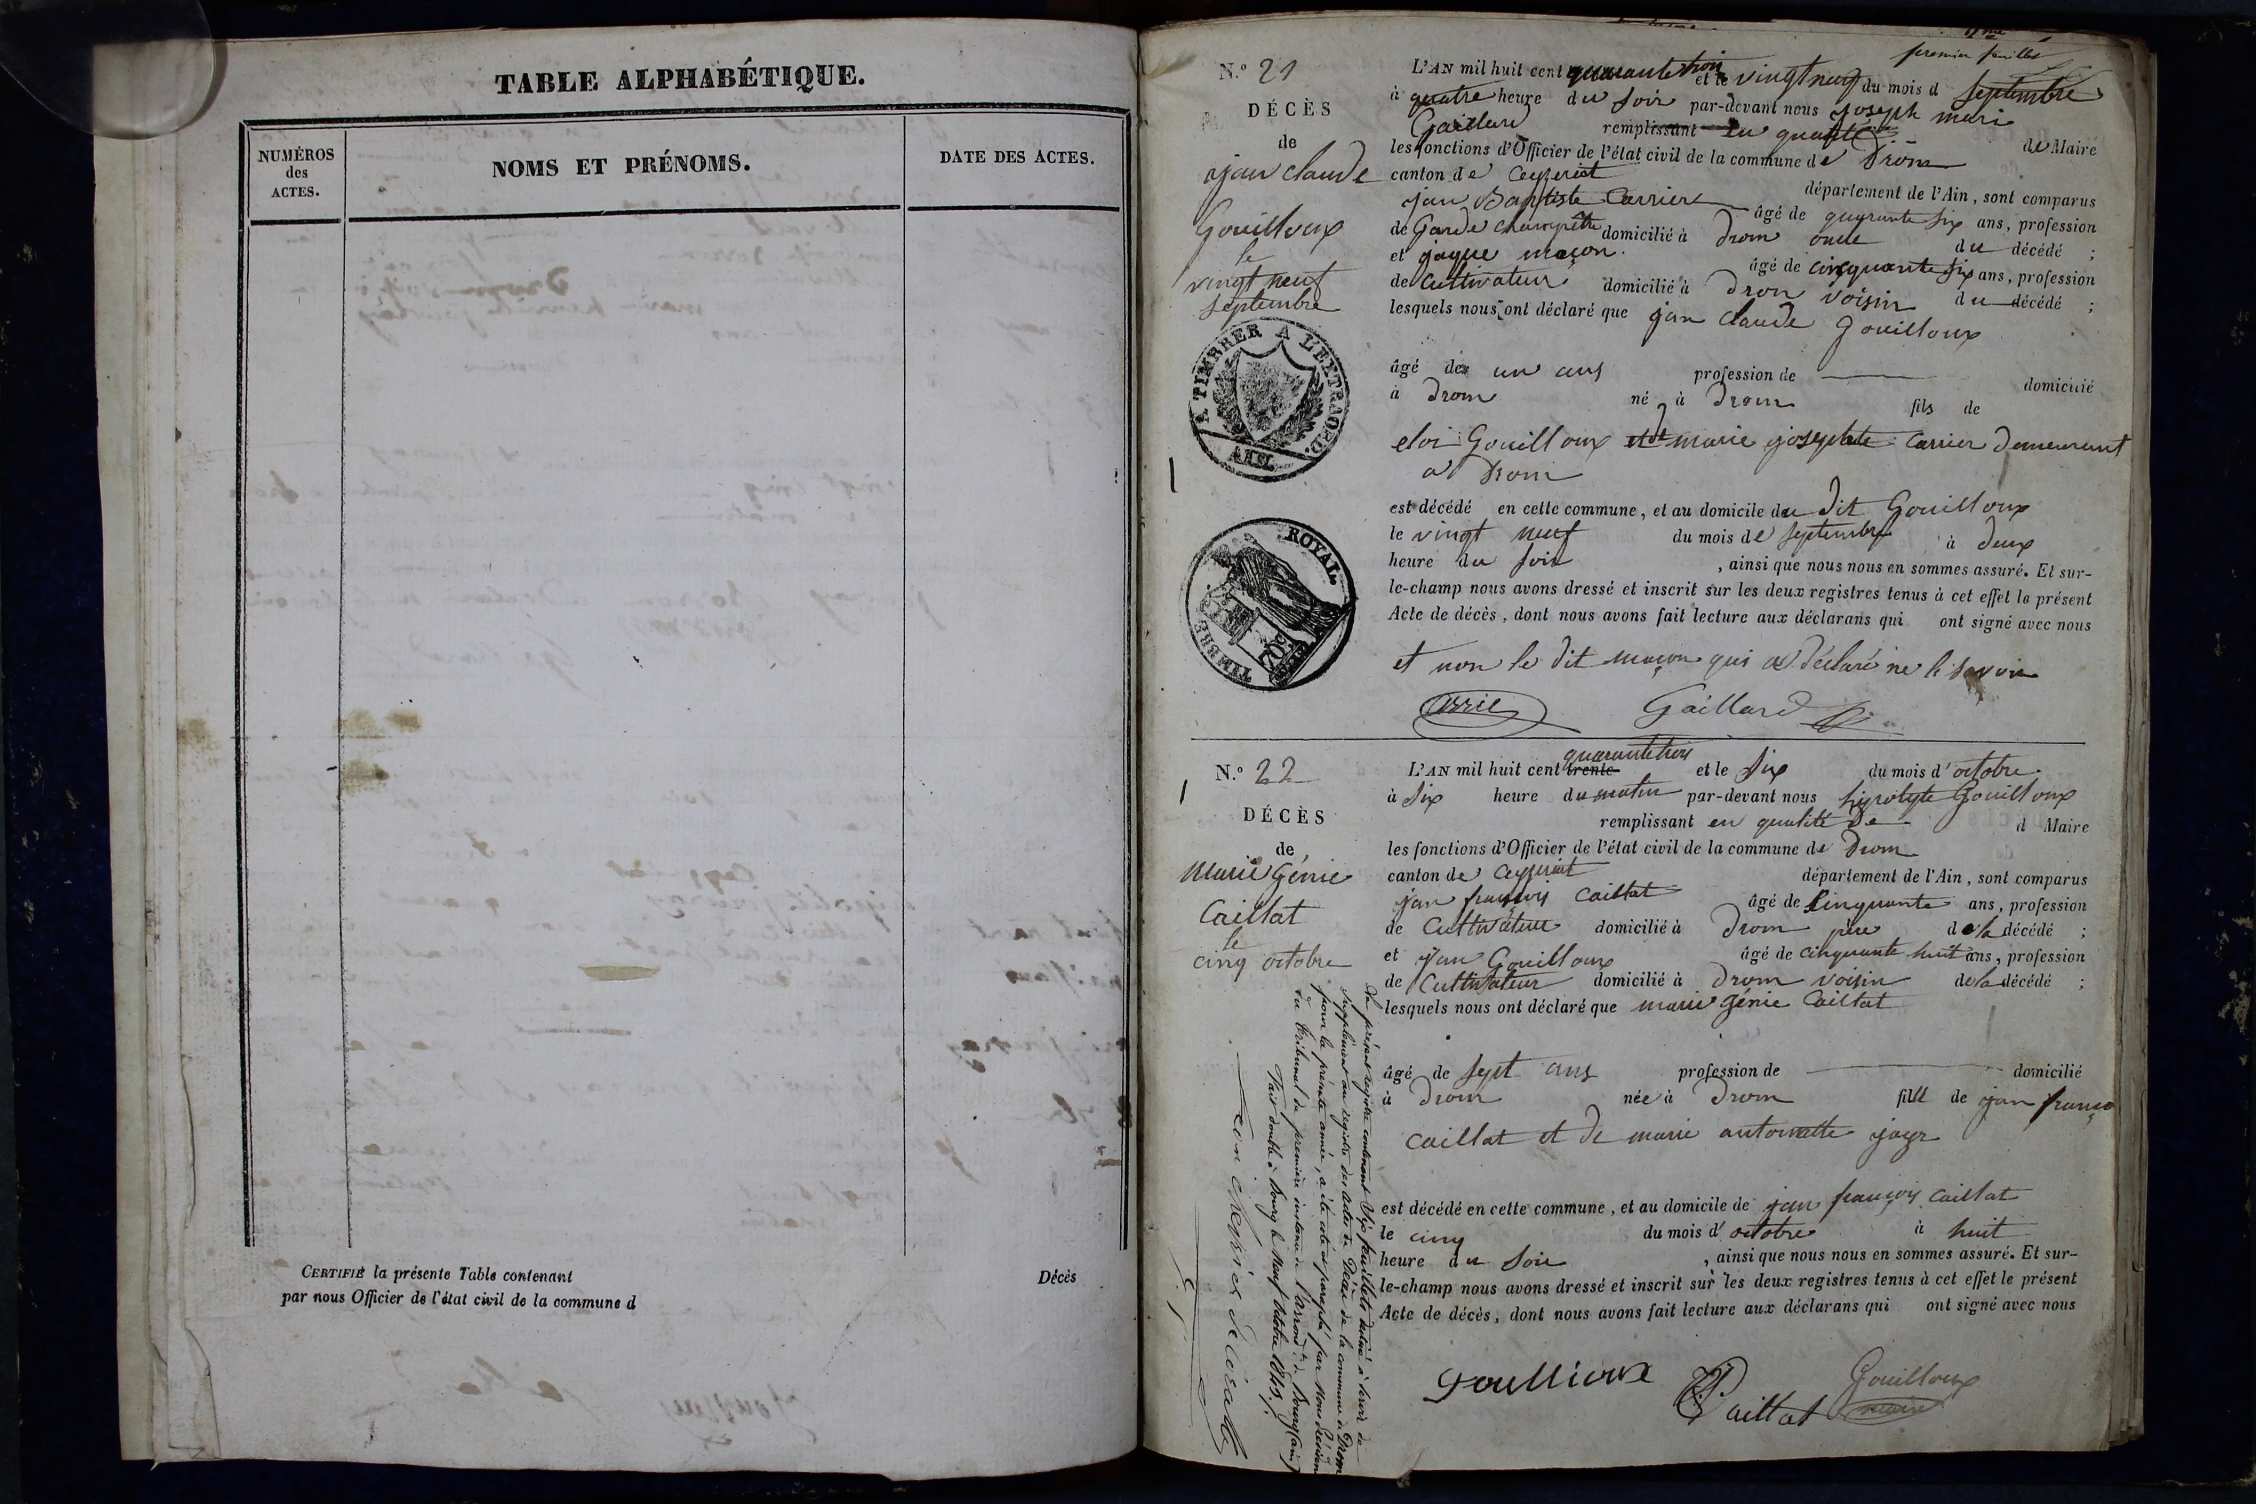 TABLE ALPHABÉTIQUE.
NUMÉROS
des
ACTES.
NOMS ET PRÉNOMS.
DATE DES ACTES.
CERTIFIÉ la présente Table contenant
Décès
par nous Officier de l'état civil de la commune d
premier feuillet
N.º 21
DÉCÈS
de
jan claude
Gouilloux
le
vingt neuf
septembre
A TIMBRER A L'EXTRAORD.
TIMBRE ROYAL
70c
L'AN mil huit cent quarante trois et le vingt neuf du mois d septembre
à quatre heure du soir par-devant nous joseph mari
Gaillard remplissant en qualité de Maire
les fonctions d'Officier de l'état civil de la commune de Drom
canton de Ceyzeriat département de l'Ain, sont comparus
jan Baptiste Carrier âgé de quarante six ans, profession
de Garde champêtre domicilié à Drom oncle du décédé ;
et jaque maçon âgé de cinquante six ans, profession
de Cultivateur domicilié à Drom voisin du décédé ;
lesquels nous ont déclaré que jan claude Gouilloux
âgé de un ans profession de domicilié
à Drom né à Drom fils de
eloi Gouilloux et de marie josephte Carrier demeurant
a Drom
est décédé en cette commune, et au domicile du dit Gouilloux
le vingt neuf du mois de septembre à deux
heure du soir , ainsi que nous nous en sommes assuré. Et sur-
le-champ nous avons dressé et inscrit sur les deux registres tenus à cet effet le présent
Acte de décès, dont nous avons fait lecture aux déclarans qui ont signé avec nous
et non le dit maçon qui a déclaré ne le savoir
Carrie Gaillard
N.º 22
DÉCÈS
de
Marie Génie
Caillat
le
cinq octobre
L'AN mil huit cent trente quarante trois et le six du mois d'octobre
à six heure du matin par-devant nous hipolyte Gouilloux
remplissant en qualité de d Maire
les fonctions d'Officier de l'état civil de la commune de Drom
canton de Ceyzeriat département de l'Ain, sont comparus
jan françois Caillat âgé de Cinquante ans, profession
de Cultivateur domicilié à Drom père de la décédé ;
et jan Gouilloux âgé de cinquante huit ans, profession
de Cultivateur domicilié à Drom voisin de la décédé ;
lesquels nous ont déclaré que marie génie Caillat
âgé de sept ans profession de domicilié
à Drom née à Drom fille de jan françois
Caillat et de marie antoinette jayr
est décédé en cette commune, et au domicile de jan françois Caillat
le cinq du mois d'octobre à huit
heure du soir , ainsi que nous nous en sommes assuré. Et sur-
le-champ nous avons dressé et inscrit sur les deux registres tenus à cet effet le présent
Acte de décès, dont nous avons fait lecture aux déclarans qui ont signé avec nous
Goullioux Caillat Gouilloux
maire
Le présent registre contenant six feuillets destiné à servir de
supplément au registre des actes de Décès de la commune de Drom
pour la présente année, a été coté et paraphé par Nous
du Tribunal de première instance de l'arrond.t de Bourg (ain)
Fait double à Bourg le Neuf octobre 1843.